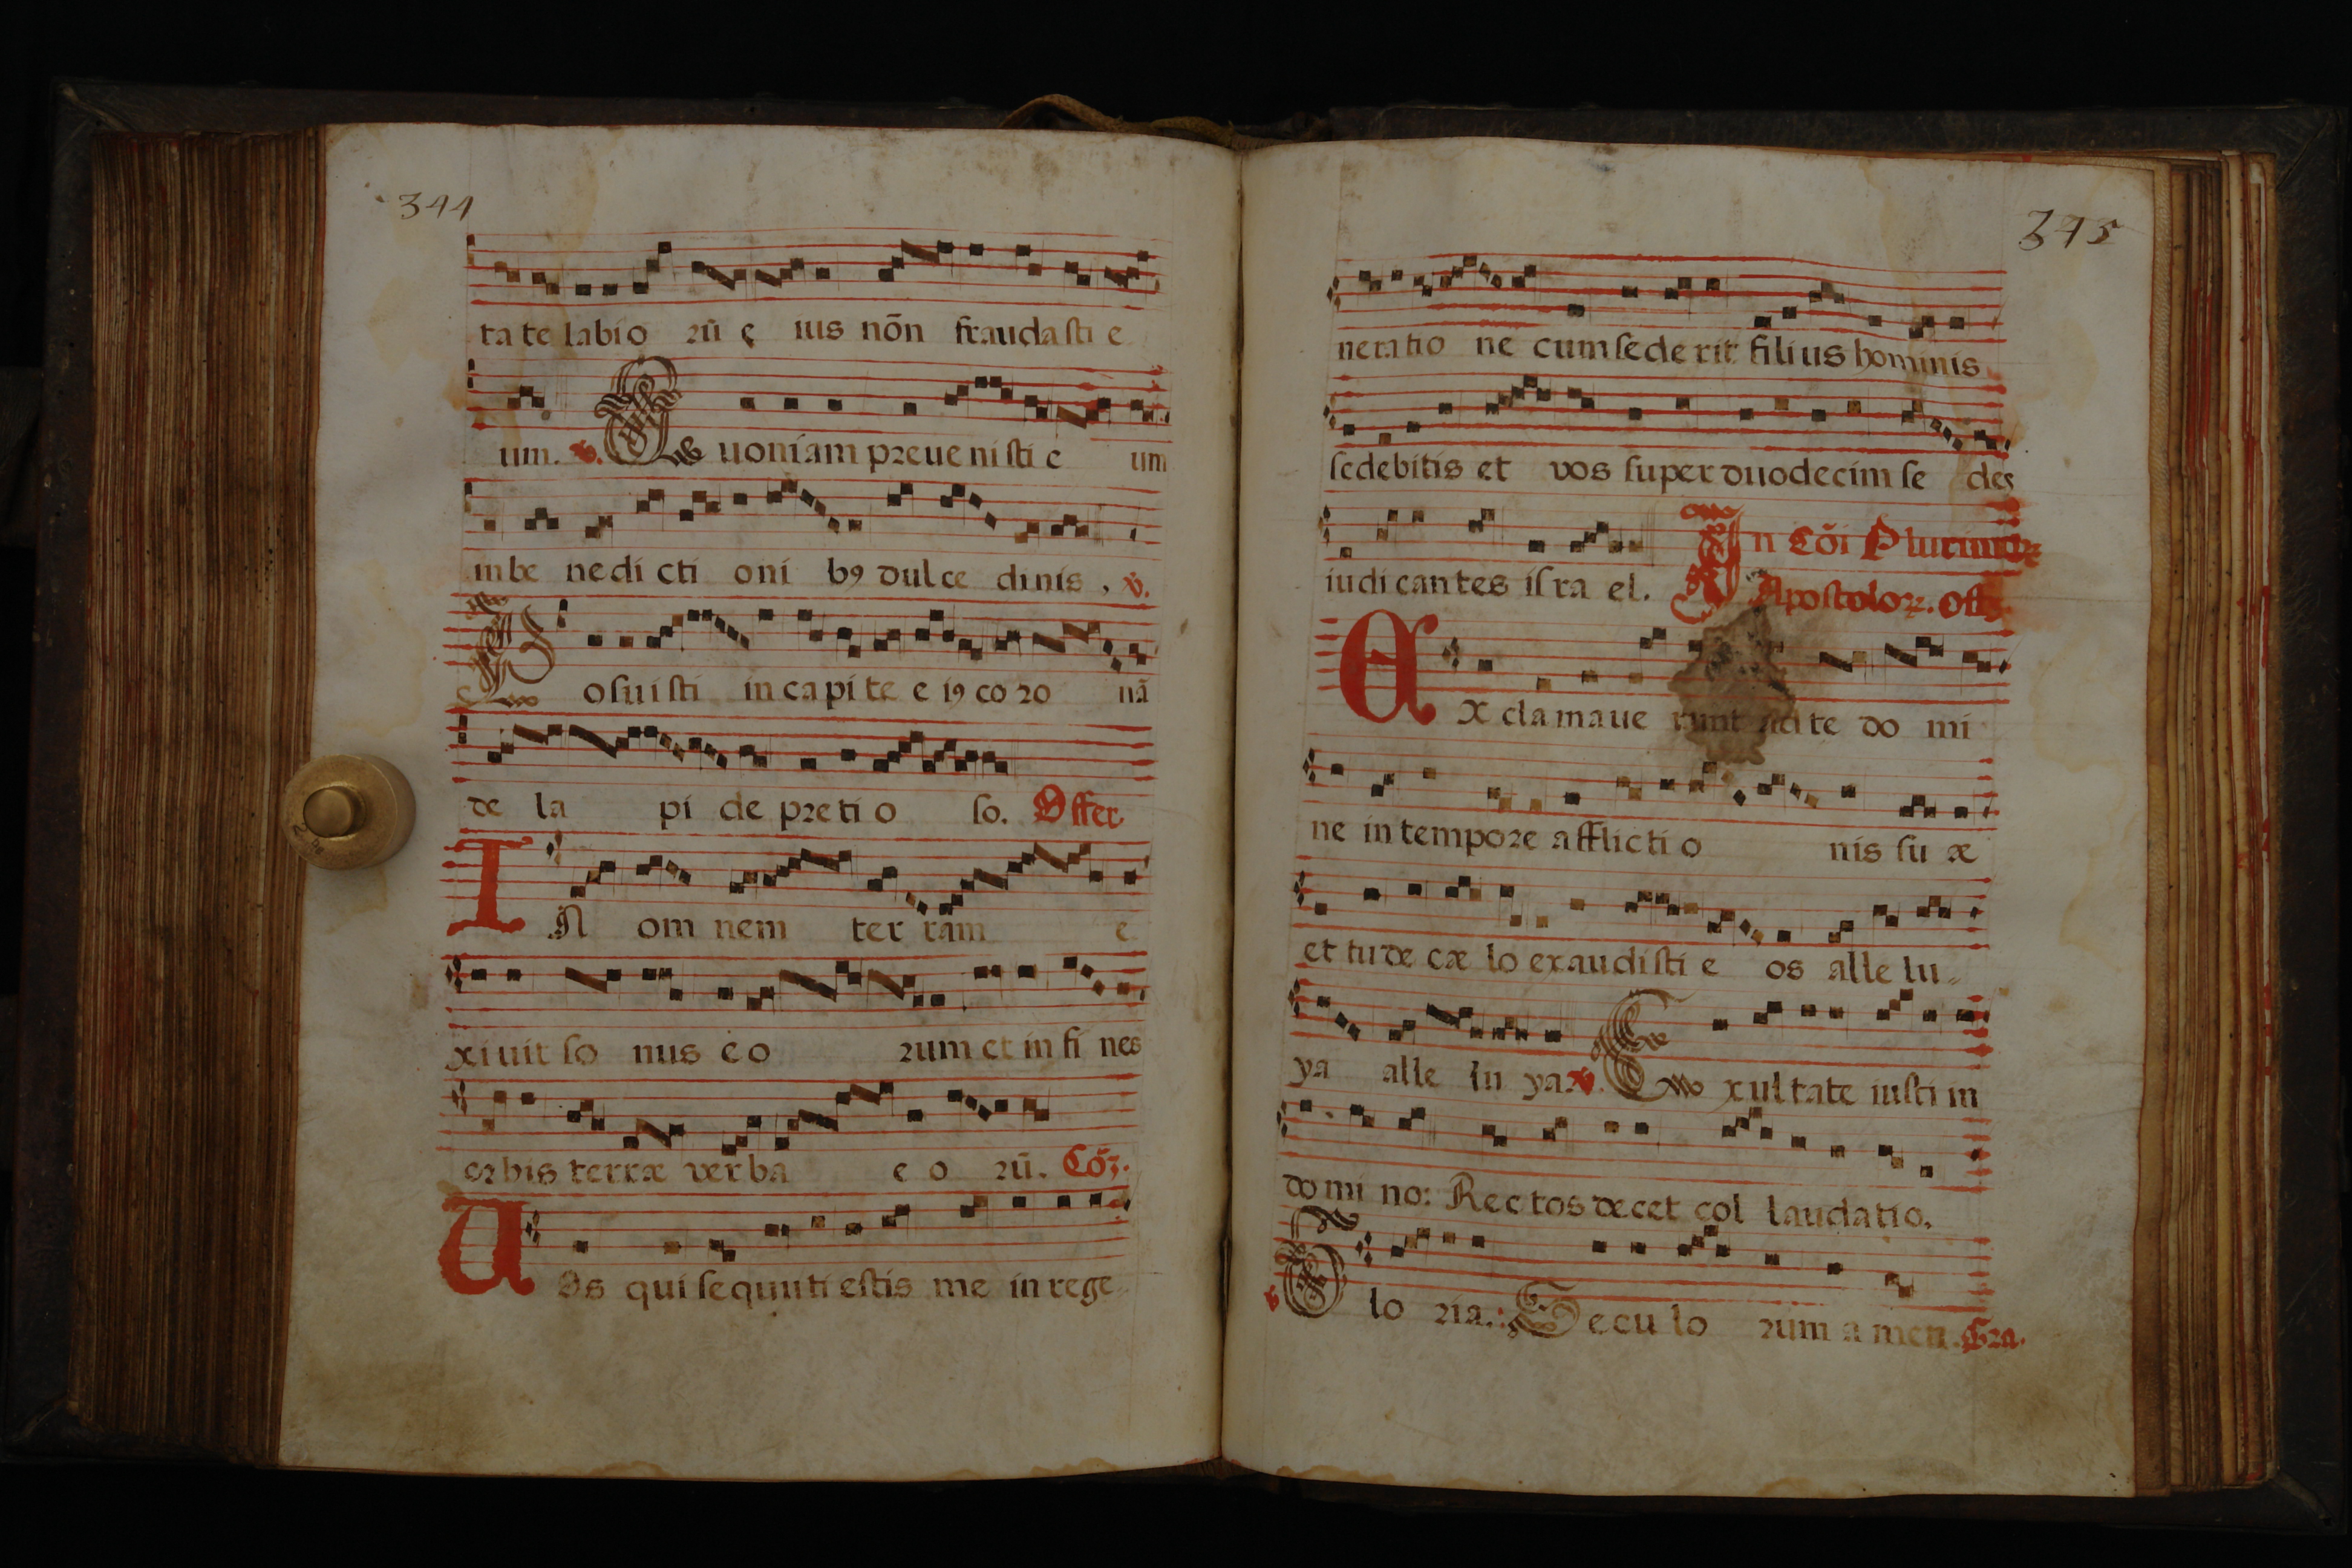 344
ta te labio rū e ius nōn fraudasti e
um. ℣. Q uoniam preuenisti e um
in be nedi cti oni bꝯ dulce dinis, ℣.
P osuisti in capite e iꝯ co ro nā
de la pi de preti o so. Offer
I N om nem ter ram e
xiuit so nus e o rum et in fi nes
orbis terræ verba e o rū. Cōī.
U Os qui sequuti estis me in rege
375
neratio ne cum sede rit filius hominis
sedebitis et vos super duodecim se des
iudicantes isra el. In Cōi Plurimoꝝ
Apostoloꝝ. Offʒ.
E x clamaue runt ad te do mi
ne in tempore afflicti o nis su æ
et tu de cæ lo exaudisti e os alle lu
ya alle lu ya. ℣. E xultate iusti in
domi no: Rectos decet col laudatio.
℣ G lo ria. Seculo rum amen. Gra.